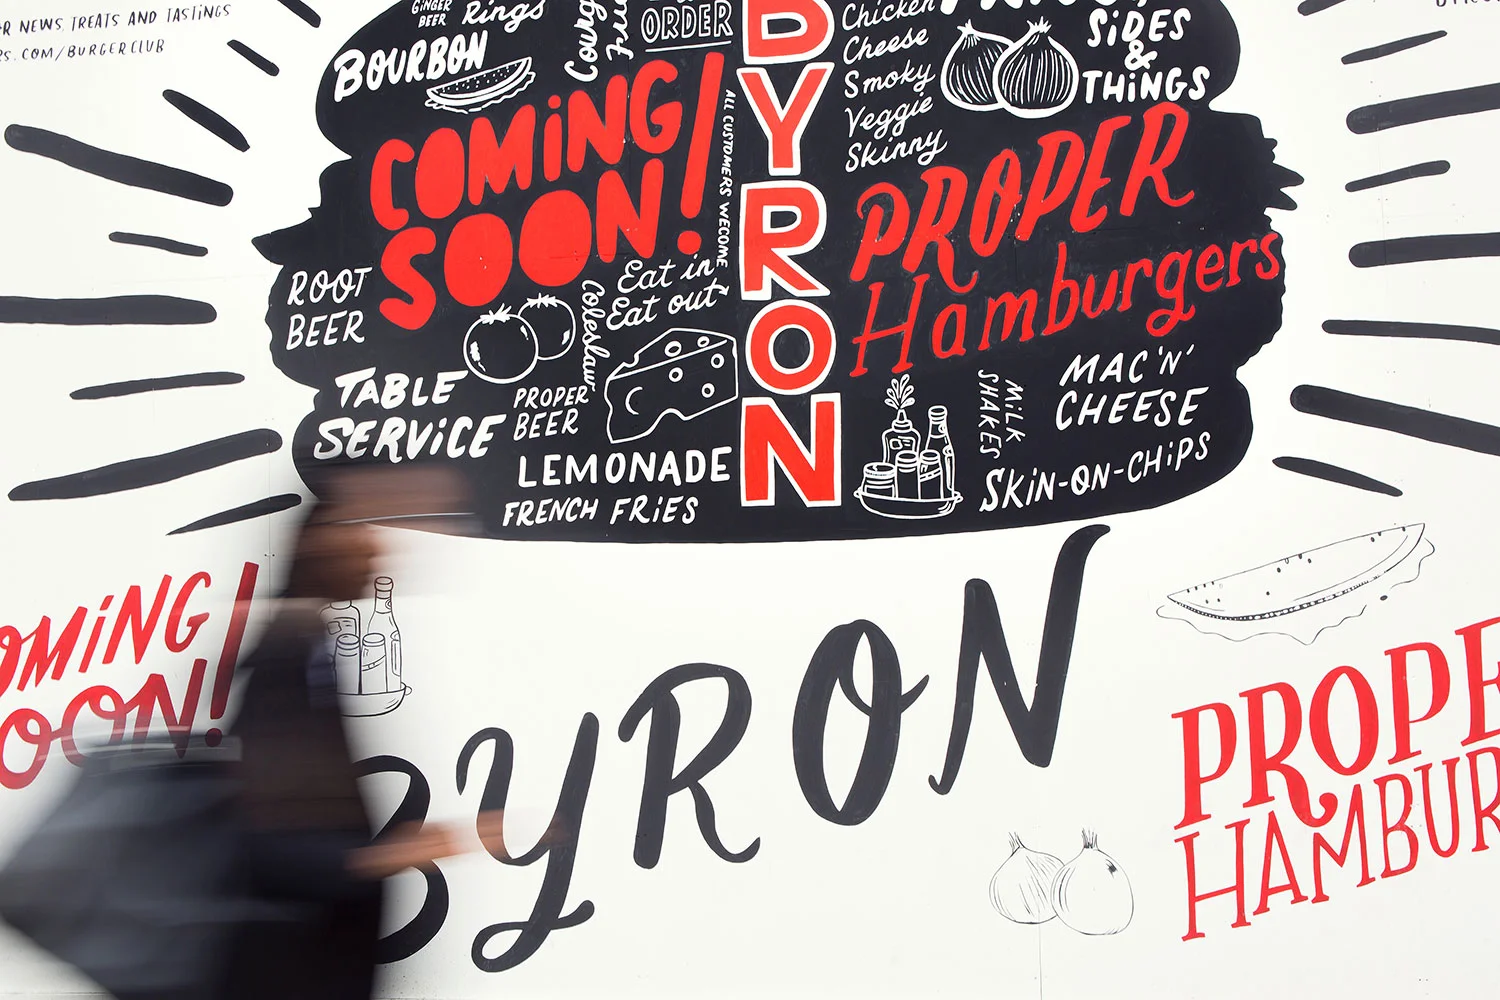 R NEWS, TREATS AND TASTINGS
RS.COM/BURGERCLUB
GINGER
BEER
Rings
BOURBON
ORDER
COMING
SOON!
ALL CUSTOMERS WECOME
BYRON
Chicken
Cheese
Smoky
Veggie
Skinny
SIDES
&
THINGS
PROPER
Hamburgers
ROOT
BEER
Eat in
Eat out
Coleslaw
TABLE
SERVICE
PROPER
BEER
LEMONADE
FRENCH FRIES
MILK
SHAKES
MAC 'N'
CHEESE
SKIN-ON-CHIPS
OMING
OON!
BYRON
PROPE
HAMBUR